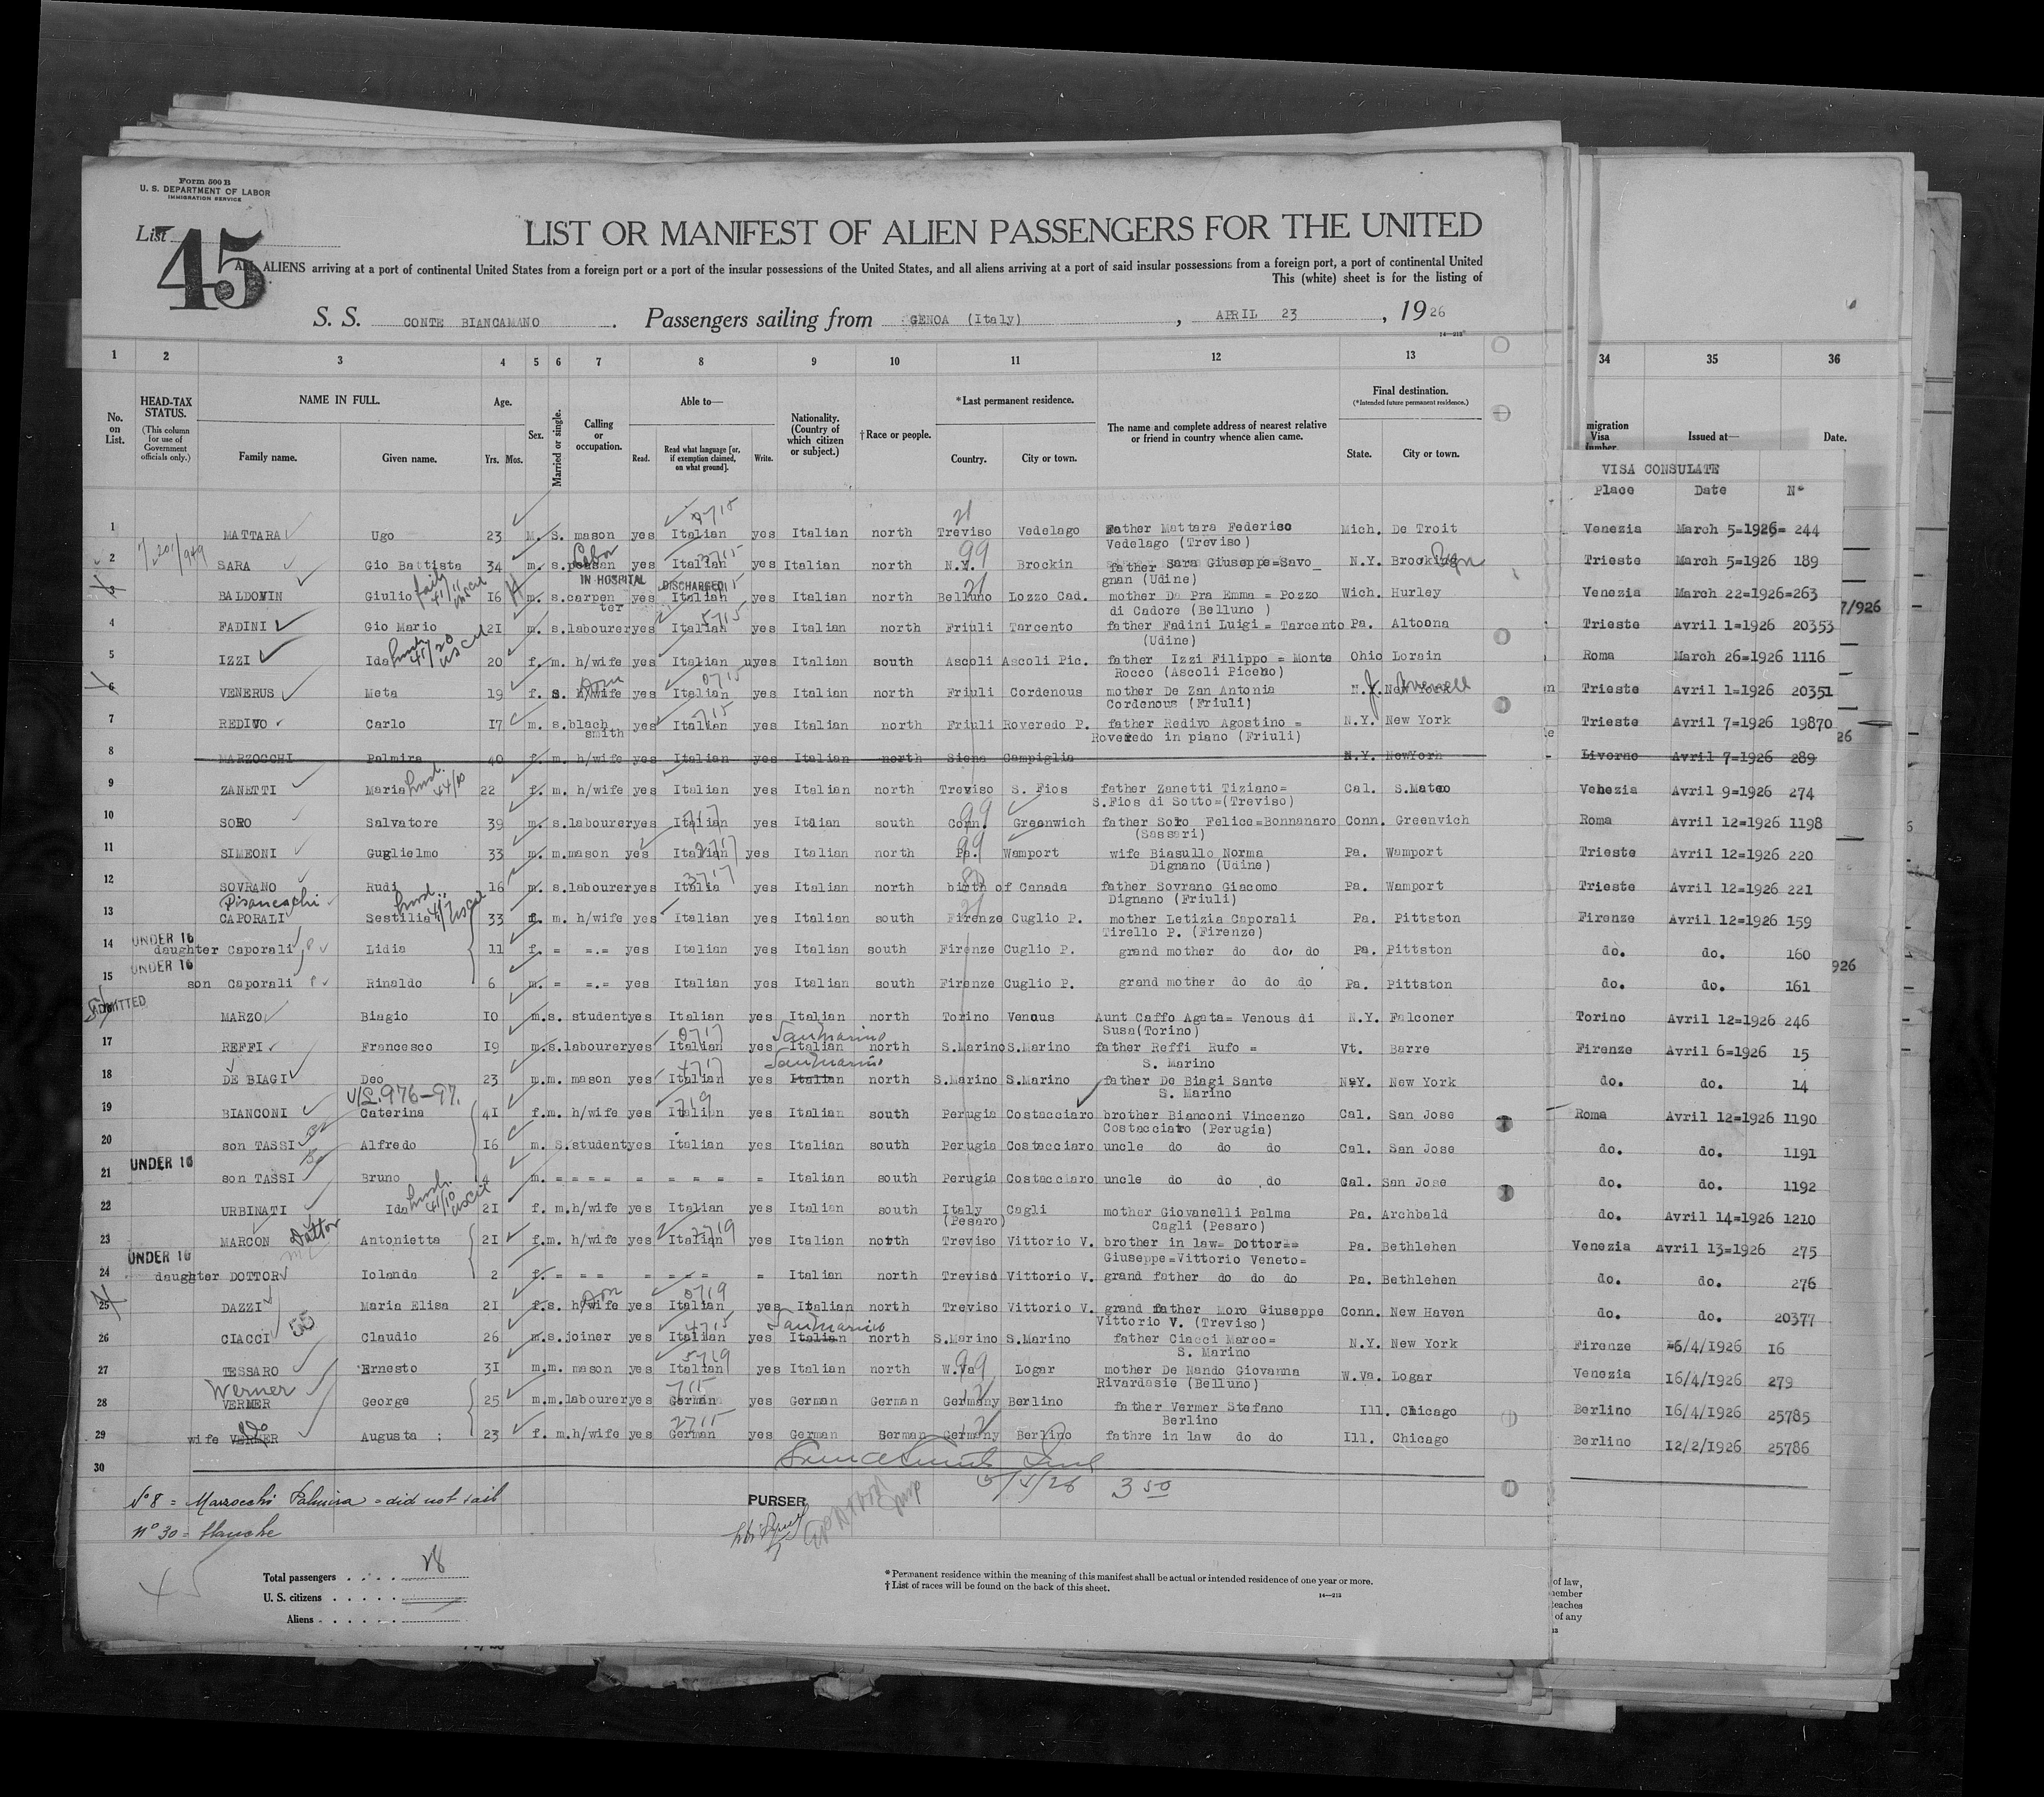 Form 500 B
U. S. DEPARTMENT OF LABOR
IMMIGRATION SERVICE
List 45
LIST OR MANIFEST OF ALIEN PASSENGERS FOR THE UNITED
ALL ALIENS arriving at a port of continental United States from a foreign port or a port of the insular possessions of the United States, and all aliens arriving at a port of said insular possessions from a foreign port, a port of continental United
This (white) sheet is for the listing of
S. S. CONTE BIANCAMANO. Passengers sailing from GENOA (Italy), APRIL 23, 1926
14—212
1 2 3 4 5 6 7 8 9 10 11 12 13 34 35 36
No. on List.
HEAD-TAX STATUS. (This column for use of Government officials only.)
NAME IN FULL. Family name. Given name.
Age. Yrs. Mos.
Sex.
Married or single.
Calling or occupation.
Able to— Read. Read what language [or, if exemption claimed, on what ground]. Write.
Nationality. (Country of which citizen or subject.)
† Race or people.
*Last permanent residence. Country. City or town.
The name and complete address of nearest relative or friend in country whence alien came.
Final destination. (*Intended future permanent residence.) State. City or town.
migration Visa Number. Issued at— Date.
VISA CONSULATE
Place Date N°
1 MATTARA Ugo 23 M. S. mason yes Italian yes Italian north Treviso Vedelago Father Mattara Federico Mich. De Troit Venezia March 5=1926= 244
Vedelago (Treviso)
2 SARA Gio Battista 34 m. s. Labor yes Italian yes Italian north N.Y. Brockin father Sara Giuseppe=Savo_ N.Y. Trieste March 5=1926 189
gnan (Udine)
IN HOSPITAL DISCHARGED
3 BALDOVIN Giulio 16 m. s. carpen yes Italian yes Italian north Belluno Lozzo Cad. mother Da Pra Emma = Pozzo Wich. Hurley Venezia March 22=1926=263
ter di Cadore (Belluno )
4 FADINI Gio Mario 21 m. s. labourer yes Italian yes Italian north Friuli Tarcento father Fadini Luigi = Tarcento Pa. Altoona Trieste Avril 1=1926 20353
(Udine)
5 IZZI Ida 20 f. m. h/wife yes Italian yes Italian south Ascoli Ascoli Pic. father Izzi Filippo = Monte Ohio Lorain Roma March 26=1926 1116
Rocco (Ascoli Piceno)
6 VENERUS Meta 19 f. s. h/wife yes Italian yes Italian north Friuli Cordenous mother De Zan Antonia N.Y. New York Trieste Avril 1=1926 20351
Cordenous (Friuli)
7 REDIVO Carlo 17 m. s. blach yes Italian yes Italian north Friuli Roveredo P. father Redivo Agostino = N.Y. New York Trieste Avril 7=1926 19870
smith Roveredo in piano (Friuli)
8 MARZOCCHI Palmira 40 f. m. h/wife yes Italian yes Italian north Siena Campiglia N.Y. NewYork Livorno Avril 7=1926 289
9 ZANETTI Maria 22 f. m. h/wife yes Italian yes Italian north Treviso S. Fios father Zanetti Tiziano= Cal. S.Mateo Venezia Avril 9=1926 274
S.Fios di Sotto=(Treviso)
10 SORO Salvatore 39 m. s. labourer yes Italian yes Italian south Conn. Greenwich father Soro Felice=Bonnanaro Conn. Greenvich Roma Avril 12=1926 1198
(Sassari)
11 SIMEONI Guglielmo 33 m. m. mason yes Italian yes Italian north Pa. Wamport wife Biasullo Norma Pa. Wamport Trieste Avril 12=1926 220
Dignano (Udine)
12 SOVRANO Rudi 16 m. s. labourer yes Italia yes Italian north birth of Canada father Sovrano Giacomo Pa. Wamport Trieste Avril 12=1926 221
Dignano (Friuli)
13 CAPORALI Sestilia 33 f. m. h/wife yes Italian yes Italian south Firenze Cuglio P. mother Letizia Caporali Pa. Pittston Firenze Avril 12=1926 159
Tirello P. (Firenze)
UNDER 16
14 daughter Caporali Lidia 11 f. = =.= yes Italian yes Italian south Firenze Cuglio P. grand mother do do, do Pa. Pittston do. do. 160
UNDER 16
15 son Caporali Rinaldo 6 m. = =.= yes Italian yes Italian south Firenze Cuglio P. grand mother do do do Pa. Pittston do. do. 161
ADMITTED
MARZO Biagio 10 m. s. student yes Italian yes Italian north Torino Venaus Aunt Caffo Agata= Venous di N.Y. Falconer Torino Avril 12=1926 246
Susa(Torino)
San Marino
17 REFFI Francesco 19 m. s. labourer yes Italian yes Italian north S.Marino S.Marino father Reffi Rufo = Vt. Barre Firenze Avril 6=1926 15
S. Marino
San Marino
18 DE BIAGI Deo 23 m. m. mason yes Italian yes Italian north S.Marino S.Marino father De Biagi Sante N.Y. New York do. do. 14
S. Marino
19 BIANCONI Caterina 41 f. m. h/wife yes Italian yes Italian south Perugia Costacciaro brother Bianconi Vincenzo Cal. San Jose Roma Avril 12=1926 1190
Costacciaro (Perugia)
20 son TASSI Alfredo 16 m. S. student yes Italian yes Italian south Perugia Costacciaro uncle do do do Cal. San Jose do. do. 1191
UNDER 16
21 son TASSI Bruno 4 m. = = = = = = = = = = Italian south Perugia Costacciaro uncle do do do Cal. San Jose do. do. 1192
22 URBINATI Ida 21 f. m. h/wife yes Italian yes Italian south Italy Cagli mother Giovanelli Palma Pa. Archbald do. Avril 14=1926 1210
(Pesaro) Cagli (Pesaro)
23 MARCON Dottor Antonietta 21 f. m. h/wife yes Italian yes Italian north Treviso Vittorio V. brother in law= Dottor== Pa. Bethlehen Venezia Avril 13=1926 275
UNDER 16 Giuseppe=Vittorio Veneto=
24 daughter DOTTOR Iolanda 2 f. = = = = = = = = Italian north Treviso Vittorio V. grand father do do do Pa. Bethlehen do. do. 276
25 DAZZI Maria Elisa 21 f. s. h/wife yes Italian yes Italian north Treviso Vittorio V. grand father Moro Giuseppe Conn. New Haven do. do. 20377
Vittorio V. (Treviso)
San Marino
26 CIACCI Claudio 26 m. s. joiner yes Italian yes Italian north S.Marino S.Marino father Ciacci Marco= N.Y. New York Firenze 6/4/1926 16
S. Marino
27 TESSARO Ernesto 31 m. m. mason yes Italian yes Italian north W.Va Logar mother De Nando Giovanna W.Va. Logar Venezia 16/4/1926 279
Rivardasie (Belluno)
Werner
28 VERMER George 25 m. m. labourer yes German yes German German Germany Berlino father Vermer Stefano Ill. Chicago Berlino 16/4/1926 25785
Berlino
29 wife VERMER Augusta : 23 f. m. h/wife yes German yes German German Germany Berlino fathre in law do do Ill. Chicago Berlino 12/2/1926 25786
30
N° 8 = Marzocchi Palmira = did not sail
N° 30 = blanche
PURSER
3 50
Total passengers . . . . 28
U. S. citizens . . . . .
Aliens . . . . .
* Permanent residence within the meaning of this manifest shall be actual or intended residence of one year or more.
† List of races will be found on the back of this sheet.
14—212
7/926
26
926
of law,
member
teaches
of any